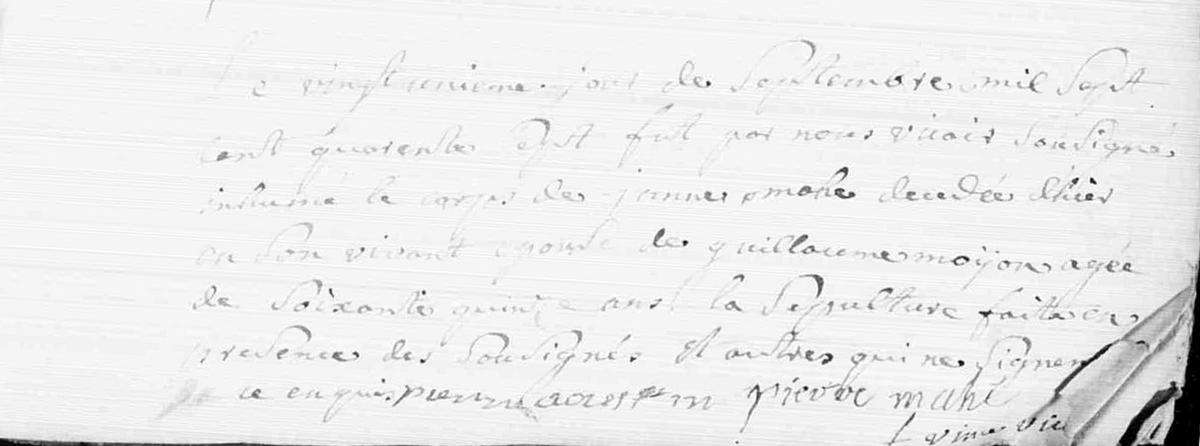 Le vingt unieme jour de Septembre mil Sept
cent quarente Sept fut par nous vicair Sousigné
inhumé le corps de janne mahe decedée d'hier
en Son vivant epouse de guillaume moÿon agée
de Soixante quinze ans la Sepulture faitte en
presence des Sousignés Et autres qui ne Signent
ce enquis pierre mahé